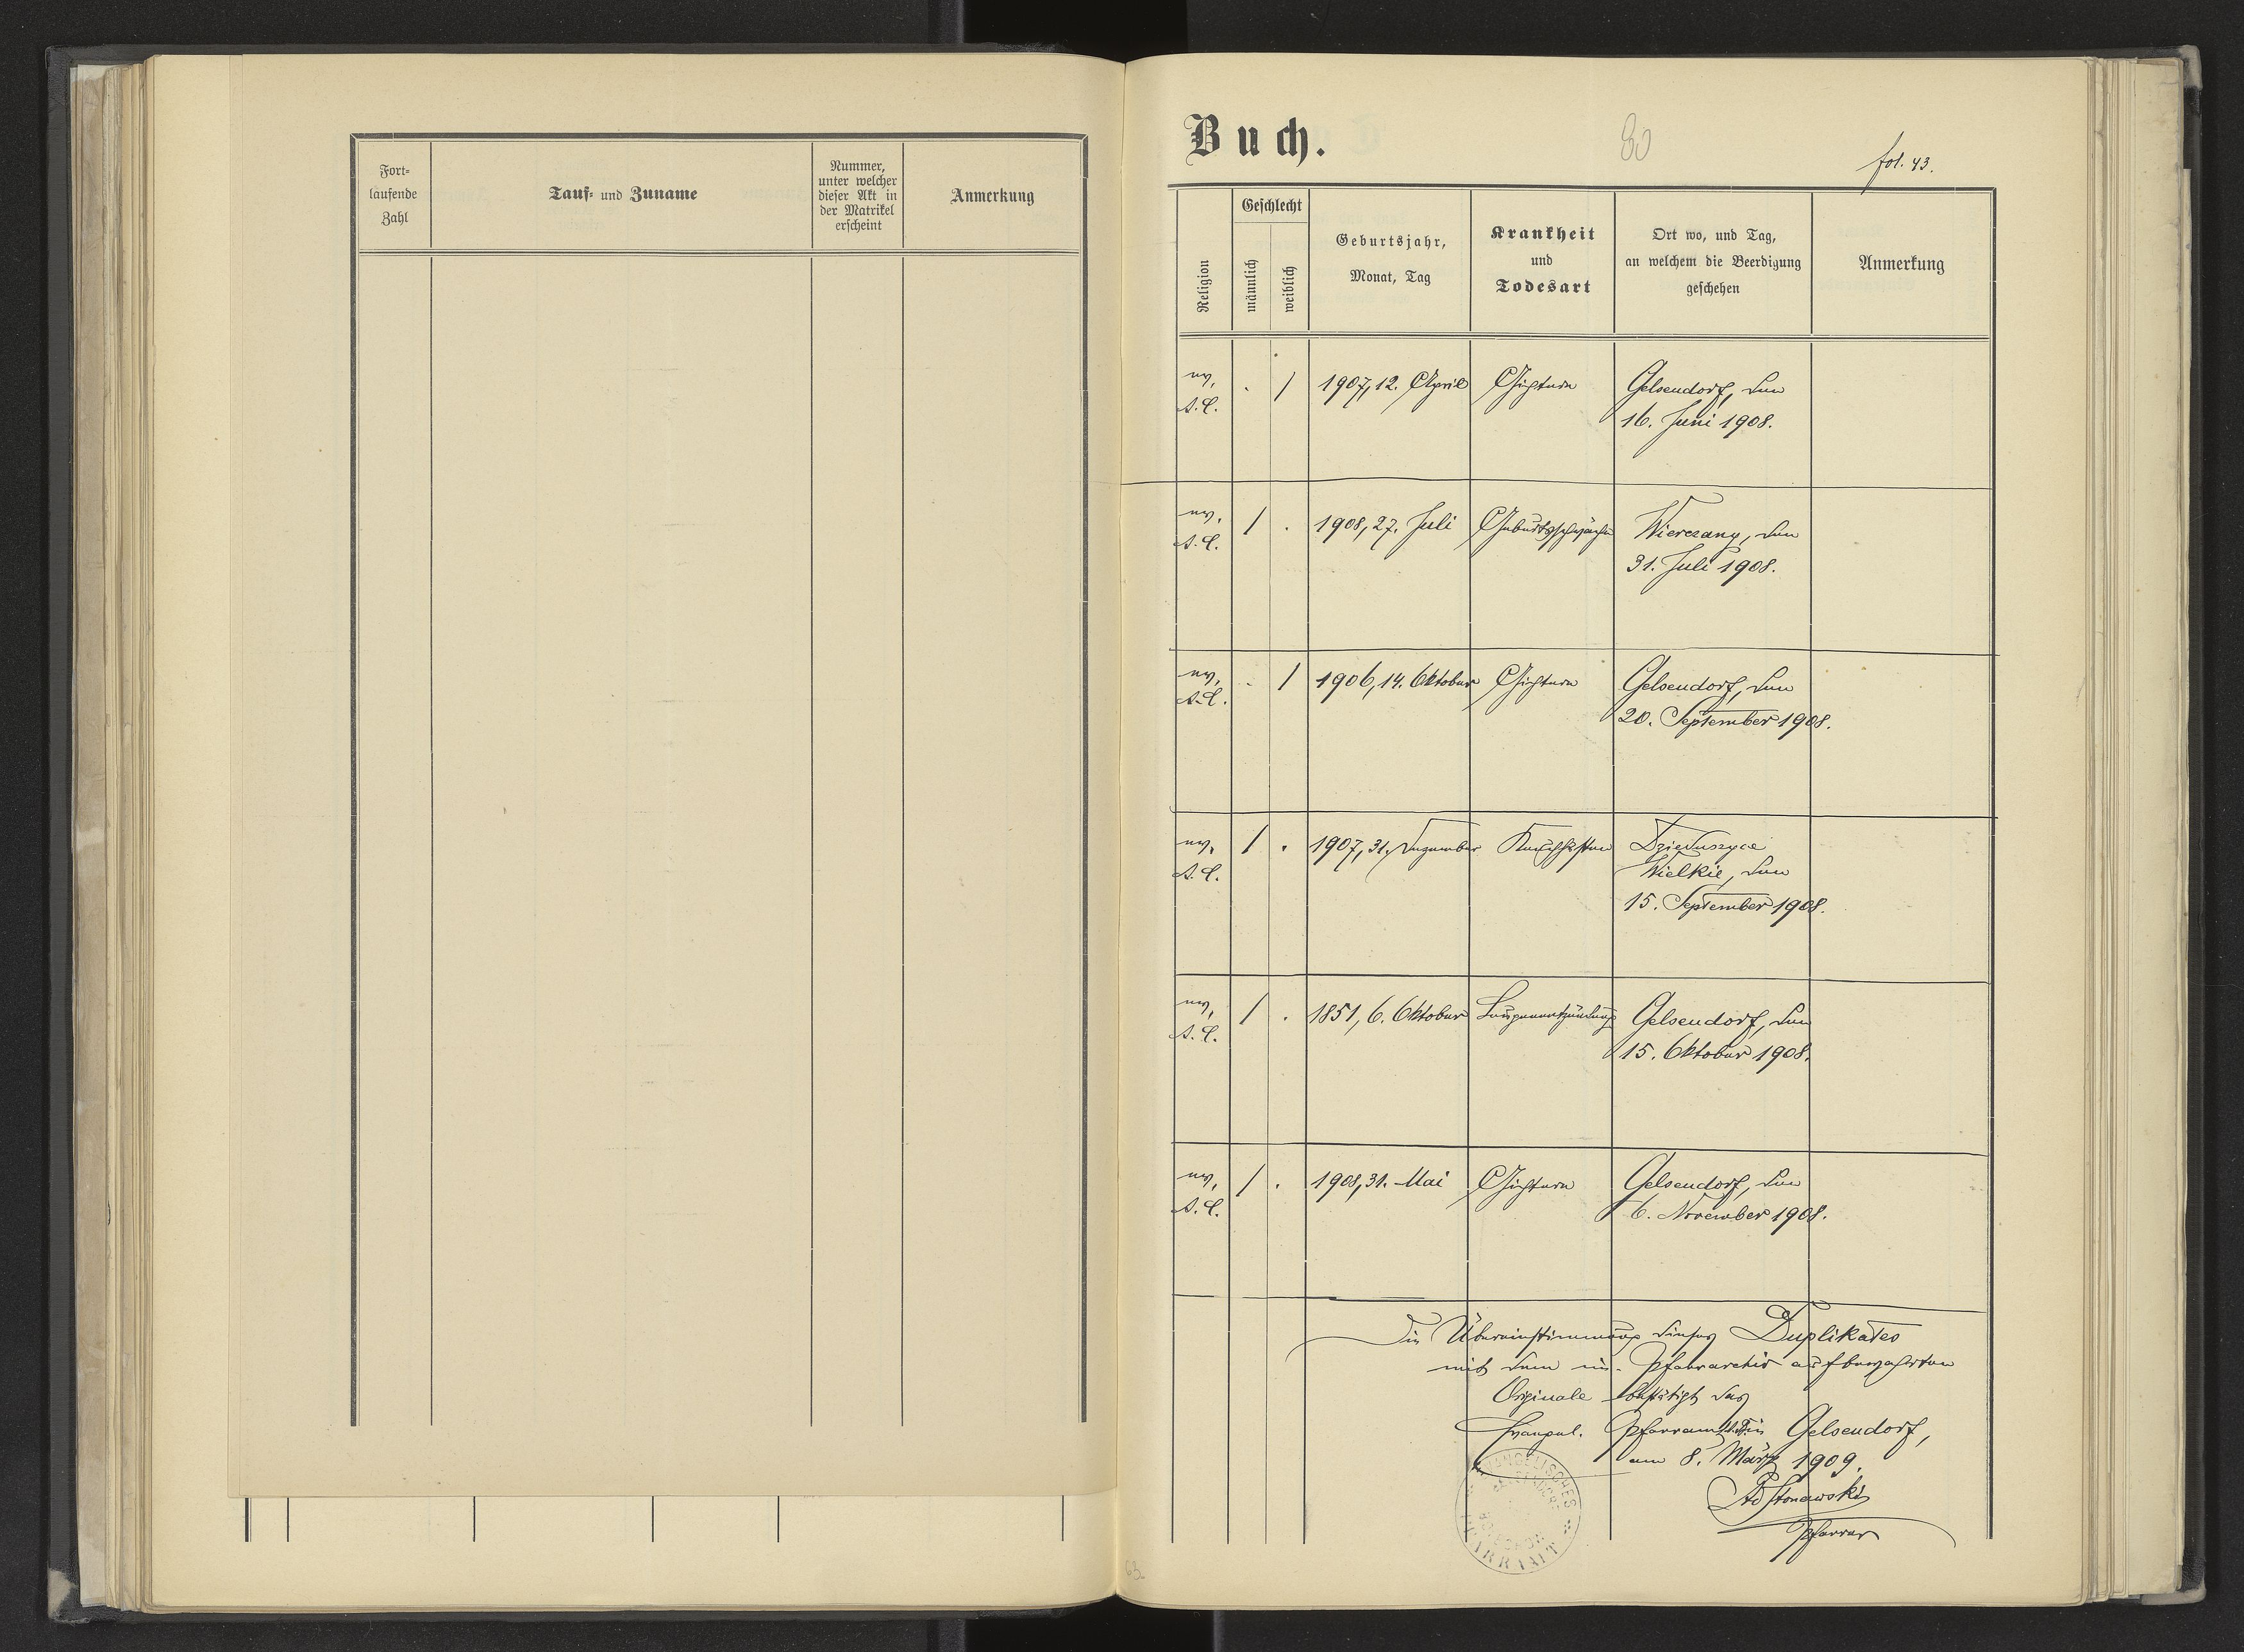 Fort-
laufende
Zahl
Tauf- und Zuname
Nummer,
unter welcher
dieser Akt in
der Matrikel
erscheint
Anmerkung
Buch.
80
fol. 43.
Religion
Geschlecht
männlich
weiblich
Geburtsjahr,
Monat, Tag
Krankheit
und
Todesart
Ort wo, und Tag,
an welchem die Beerdigung
geschehen
Anmerkung
ev.
A. C.
. / 1907, 12. April Gichtern
Gelsendorf, den
16. Juni 1908.
ev.
A. C.
/ . 1908, 27. Juli Geburtsschwäche
Wierczany, den
31. Juli 1908.
ev.
A. C.
. / 1906, 14. Oktober Gichtern
Gelsendorf, den
20. September 1908.
ev.
A. C.
/ . 1907, 31. Dezember Keuchhusten
Dzieduszyce
Wielkie, den
15. September 1908.
ev.
A. C.
/ . 1851, 6. Oktober Lungenentzündung
Gelsendorf, den
15. Oktober 1908.
ev.
A. C.
/ . 1908, 31. Mai Gichtern
Gelsendorf, den
6. November 1908.
Die Übereinstimmung dieses Duplikates
mit dem im Pfarrarchiv aufbewahrten
Originale bestätigt das
Evangel. Pfarramt in Gelsendorf,
am 8. März 1909.
Pfarrer
EVANGELISCHES
PFARRAMT
63